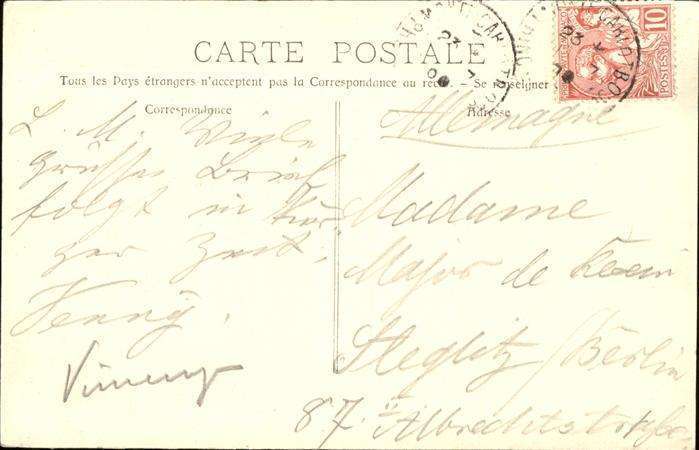 CARTE POSTALE
Tous les Pays étrangers n'acceptent pas la Correspondance au recto. - Se renseigner
Correspondance
Adresse
L. M. Viele
Grüsse Brief
folgt in Kür-
zer Zeit.
Henny.
Allemagne
Madame
Major de
Steglitz / Berlin
87 II Albrechtstr.
10
POSTES